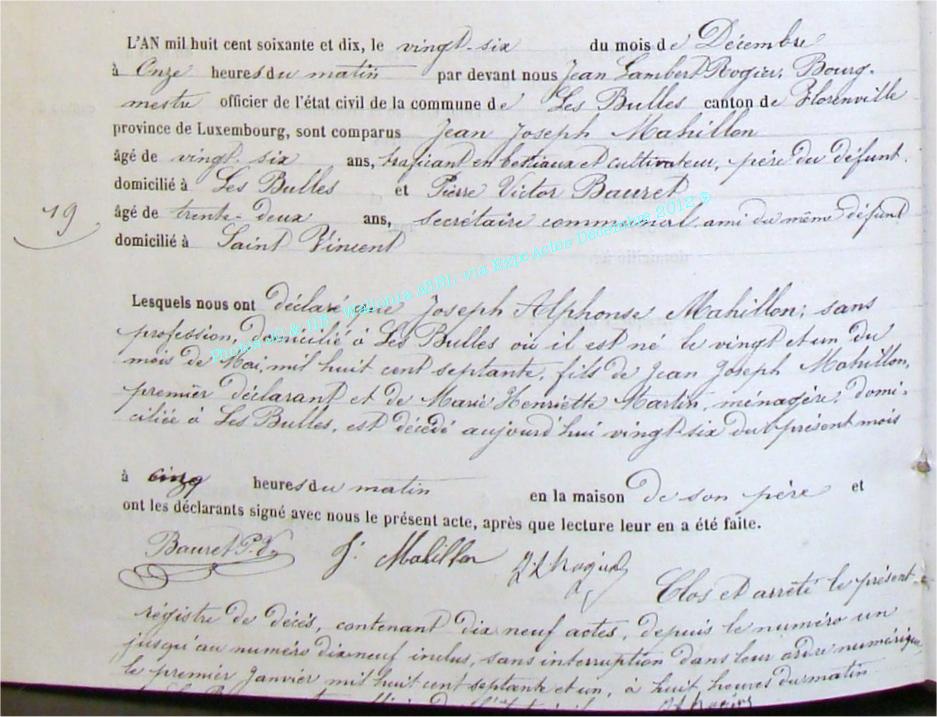 L'AN mil huit cent soixante et dix, le vingt-six du mois de Décembre
à Onze heures du matin par devant nous Jean Lambert Rogier, Bourg-
mestre officier de l'état civil de la commune de Les Bulles canton de Florenville
province de Luxembourg, sont comparus Jean Joseph Mahillon
âgé de vingt-six ans, trafiçant en bestiaux et cultivateur, père du défunt.
domicilié à Les Bulles et Pierre Victor Bauret
19
âgé de trente-deux ans, secrétaire communal, ami du même défunt
domicilié à Saint Vincent
Lesquels nous ont déclaré que Joseph Alphonse Mahillon, sans
profession, domicilié à Les Bulles où il est né le vingt et un du
mois de Mai, mil huit cent septante, fils de Jean Joseph Mahillon,
premier déclarant et de Marie Henriette Martin, ménagère, domi-
ciliée à Les Bulles, est décédé aujourd'hui vingt-six du présent mois
à cinq heures du matin en la maison de son père et
ont les déclarants signé avec nous le présent acte, après que lecture leur en a été faite.
Bauret P.V. J. Mahillon J L Rogier
Clos et arrêté le présent
régistre de décès, contenant dix neuf actes, depuis le numéro un
jusqu'au numéro dix neuf inclus, sans interruption dans leur ordre numérique
le premier Janvier mil huit cent septante et un, à huit heures du matin
Photos JC & HB - Wallonie ASBL via Expo Actes Décembre 2012 ®